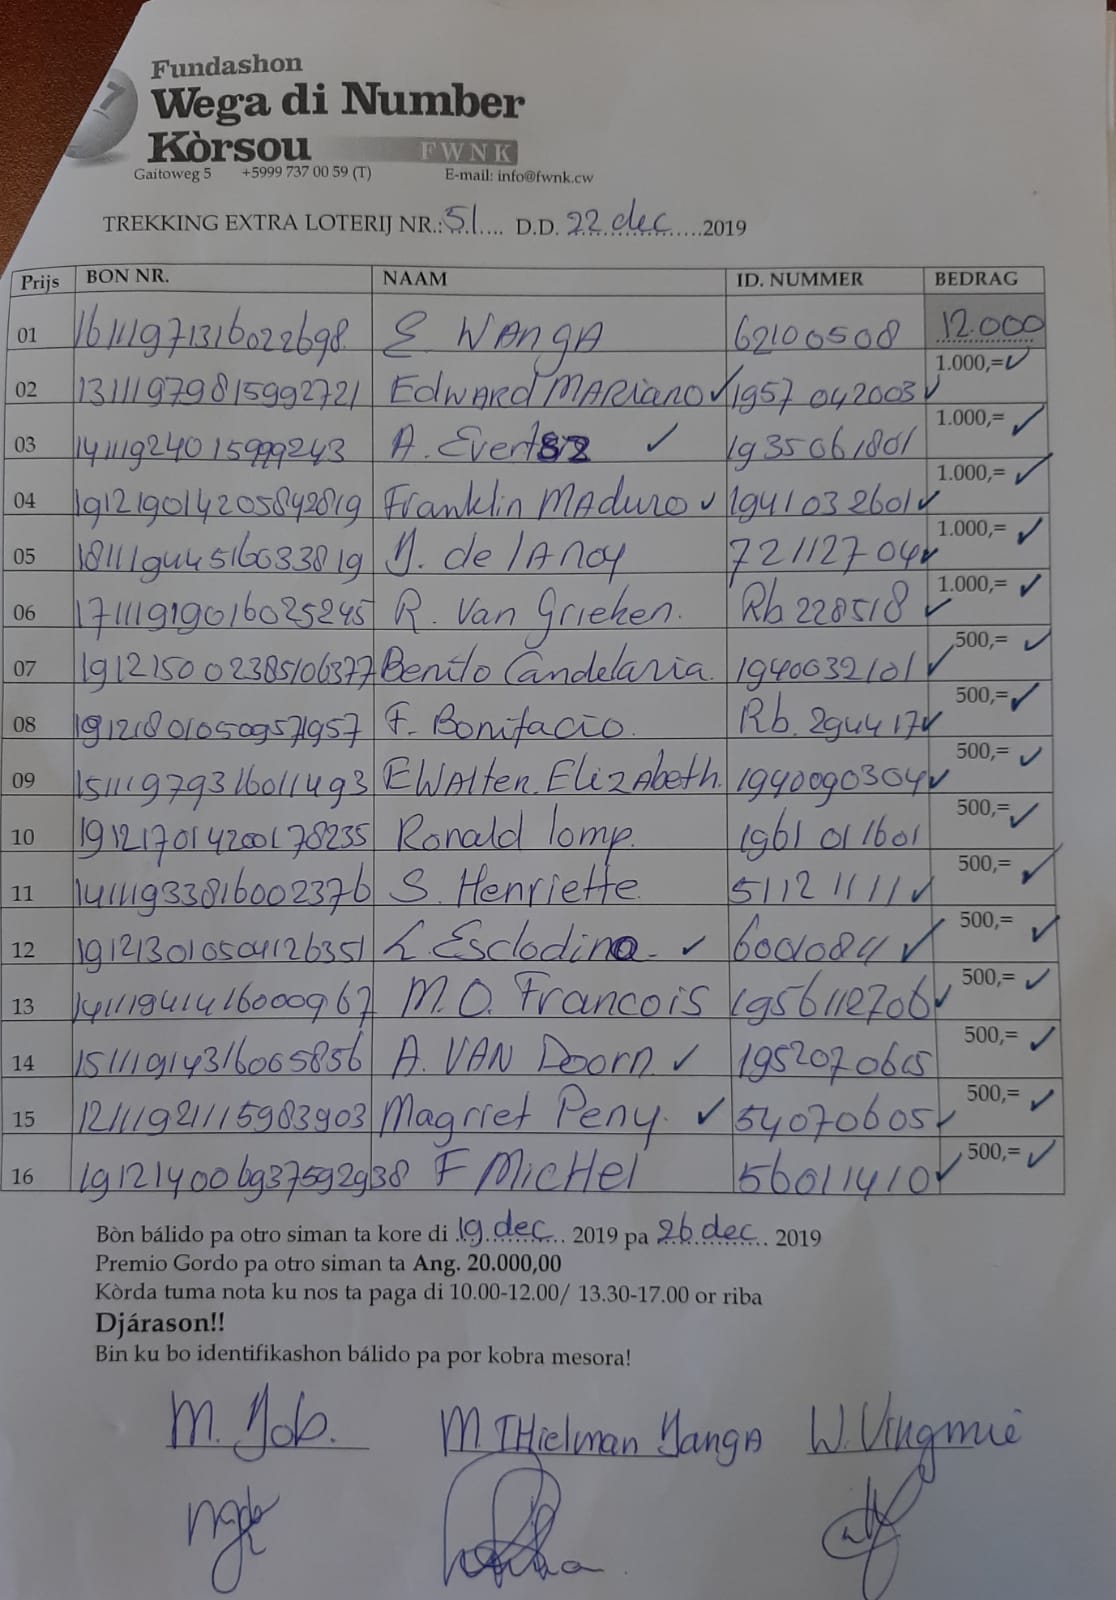 Fundashon
Wega di Number
Kòrsou FWNK
Gaitoweg 5 +5999 737 00 59 (T) E-mail: info@fwnk.cw
TREKKING EXTRA LOTERIJ NR.: 51 D.D. 22 dec 2019
Prijs BON NR. NAAM ID. NUMMER BEDRAG
01 16111971316022698 E WANGA 62100508 12.000
02 13111979815992721 Edward MARiano 1957 042003 1.000,=
03 14111924015999243 A. Evertsz 1935061801 1.000,=
04 191219014205842819 Franklin MAduro 1941032601 1.000,=
05 18111944516033819 J. de lANoy 72112704 1.000,=
06 17111919016025245 R. Van Grieken. Rb 228518 1.000,=
07 191215002385106377 Benito Candelaria. 1940032101 500,=
08 191218010509571957 F. Bonifacio. Rb. 294417 500,=
09 15111979316011493 EWAlten. ElizAbeth. 1940090304 500,=
10 191217014200178235 Ronald lomp. 1961011601 500,=
11 14111933816002376 S. Henriette 51121111 500,=
12 191213010504126351 L. Esclodina. 500,=
13 14111941416000967 M.O. Francois 1956112706 500,=
14 15111914316065856 A. VAN Doorn. 500,=
15 12111921115983903 Magriet Peny. 54070605 500,=
16 191214006937592938 F MicHel 56011410 500,=
Bòn bálido pa otro siman ta kore di 19 dec 2019 pa 26 dec 2019
Premio Gordo pa otro siman ta Ang. 20.000,00
Kòrda tuma nota ku nos ta paga di 10.00-12.00/ 13.30-17.00 or riba
Djárason!!
Bin ku bo identifikashon bálido pa por kobra mesora!
M. Job. M. THielman JangA W. Vingmié